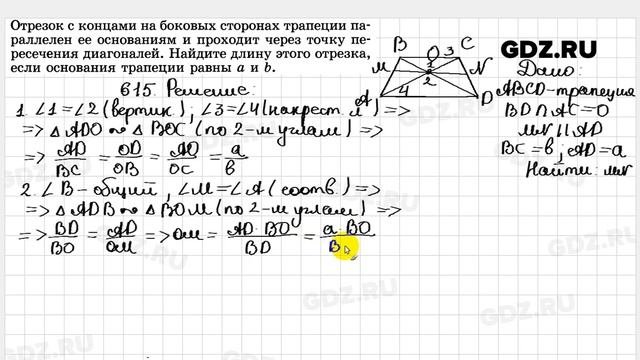 Отрезок с концами на боковых сторонах трапеции па-
раллелен ее основаниям и проходит через точку пе-
ресечения диагоналей. Найдите длину этого отрезка,
если основания трапеции равны a и b.
B O 3 C
M 1 2 N
A 4 D
GDZ.RU
Дано:
ABCD-трапеция
BD∩AC=O
MN||AD
BC=в; AD=a
Найти: MN
615. Решение:
1. ∠1=∠2(вертик); ∠3=∠4(накрест л) =>
=> △ADO ∾ △BOC (по 2-м углам) =>
=> AD/BC = OD/OB = AO/OC = a/в
2. ∠B-общий, ∠M=∠A(соотв.) =>
=> △ADB ∾ △BOM(по 2-м углам) =>
=> BD/BO = AD/OM => OM = AD·BO/BD = a·BO/B